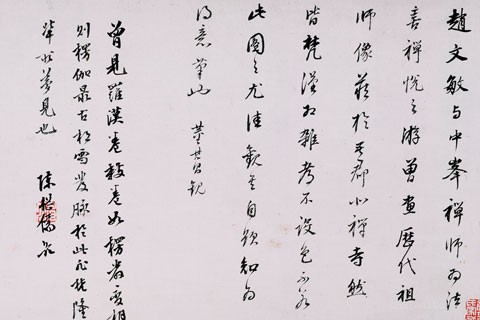 趙文敏与中峯禪師為法
善禪悅之游曾畫歷代祖
師像藏於吾郡北禪寺然
皆梵漢相雜考不設色不若
此圖之尤佳觀其自題知為
得意筆也 董其昌觀
曾見羅漢卷數卷如楞嚴變相
則楞伽最古松雪發脉於此非能隆
輩所夢見也
陳繼儒記